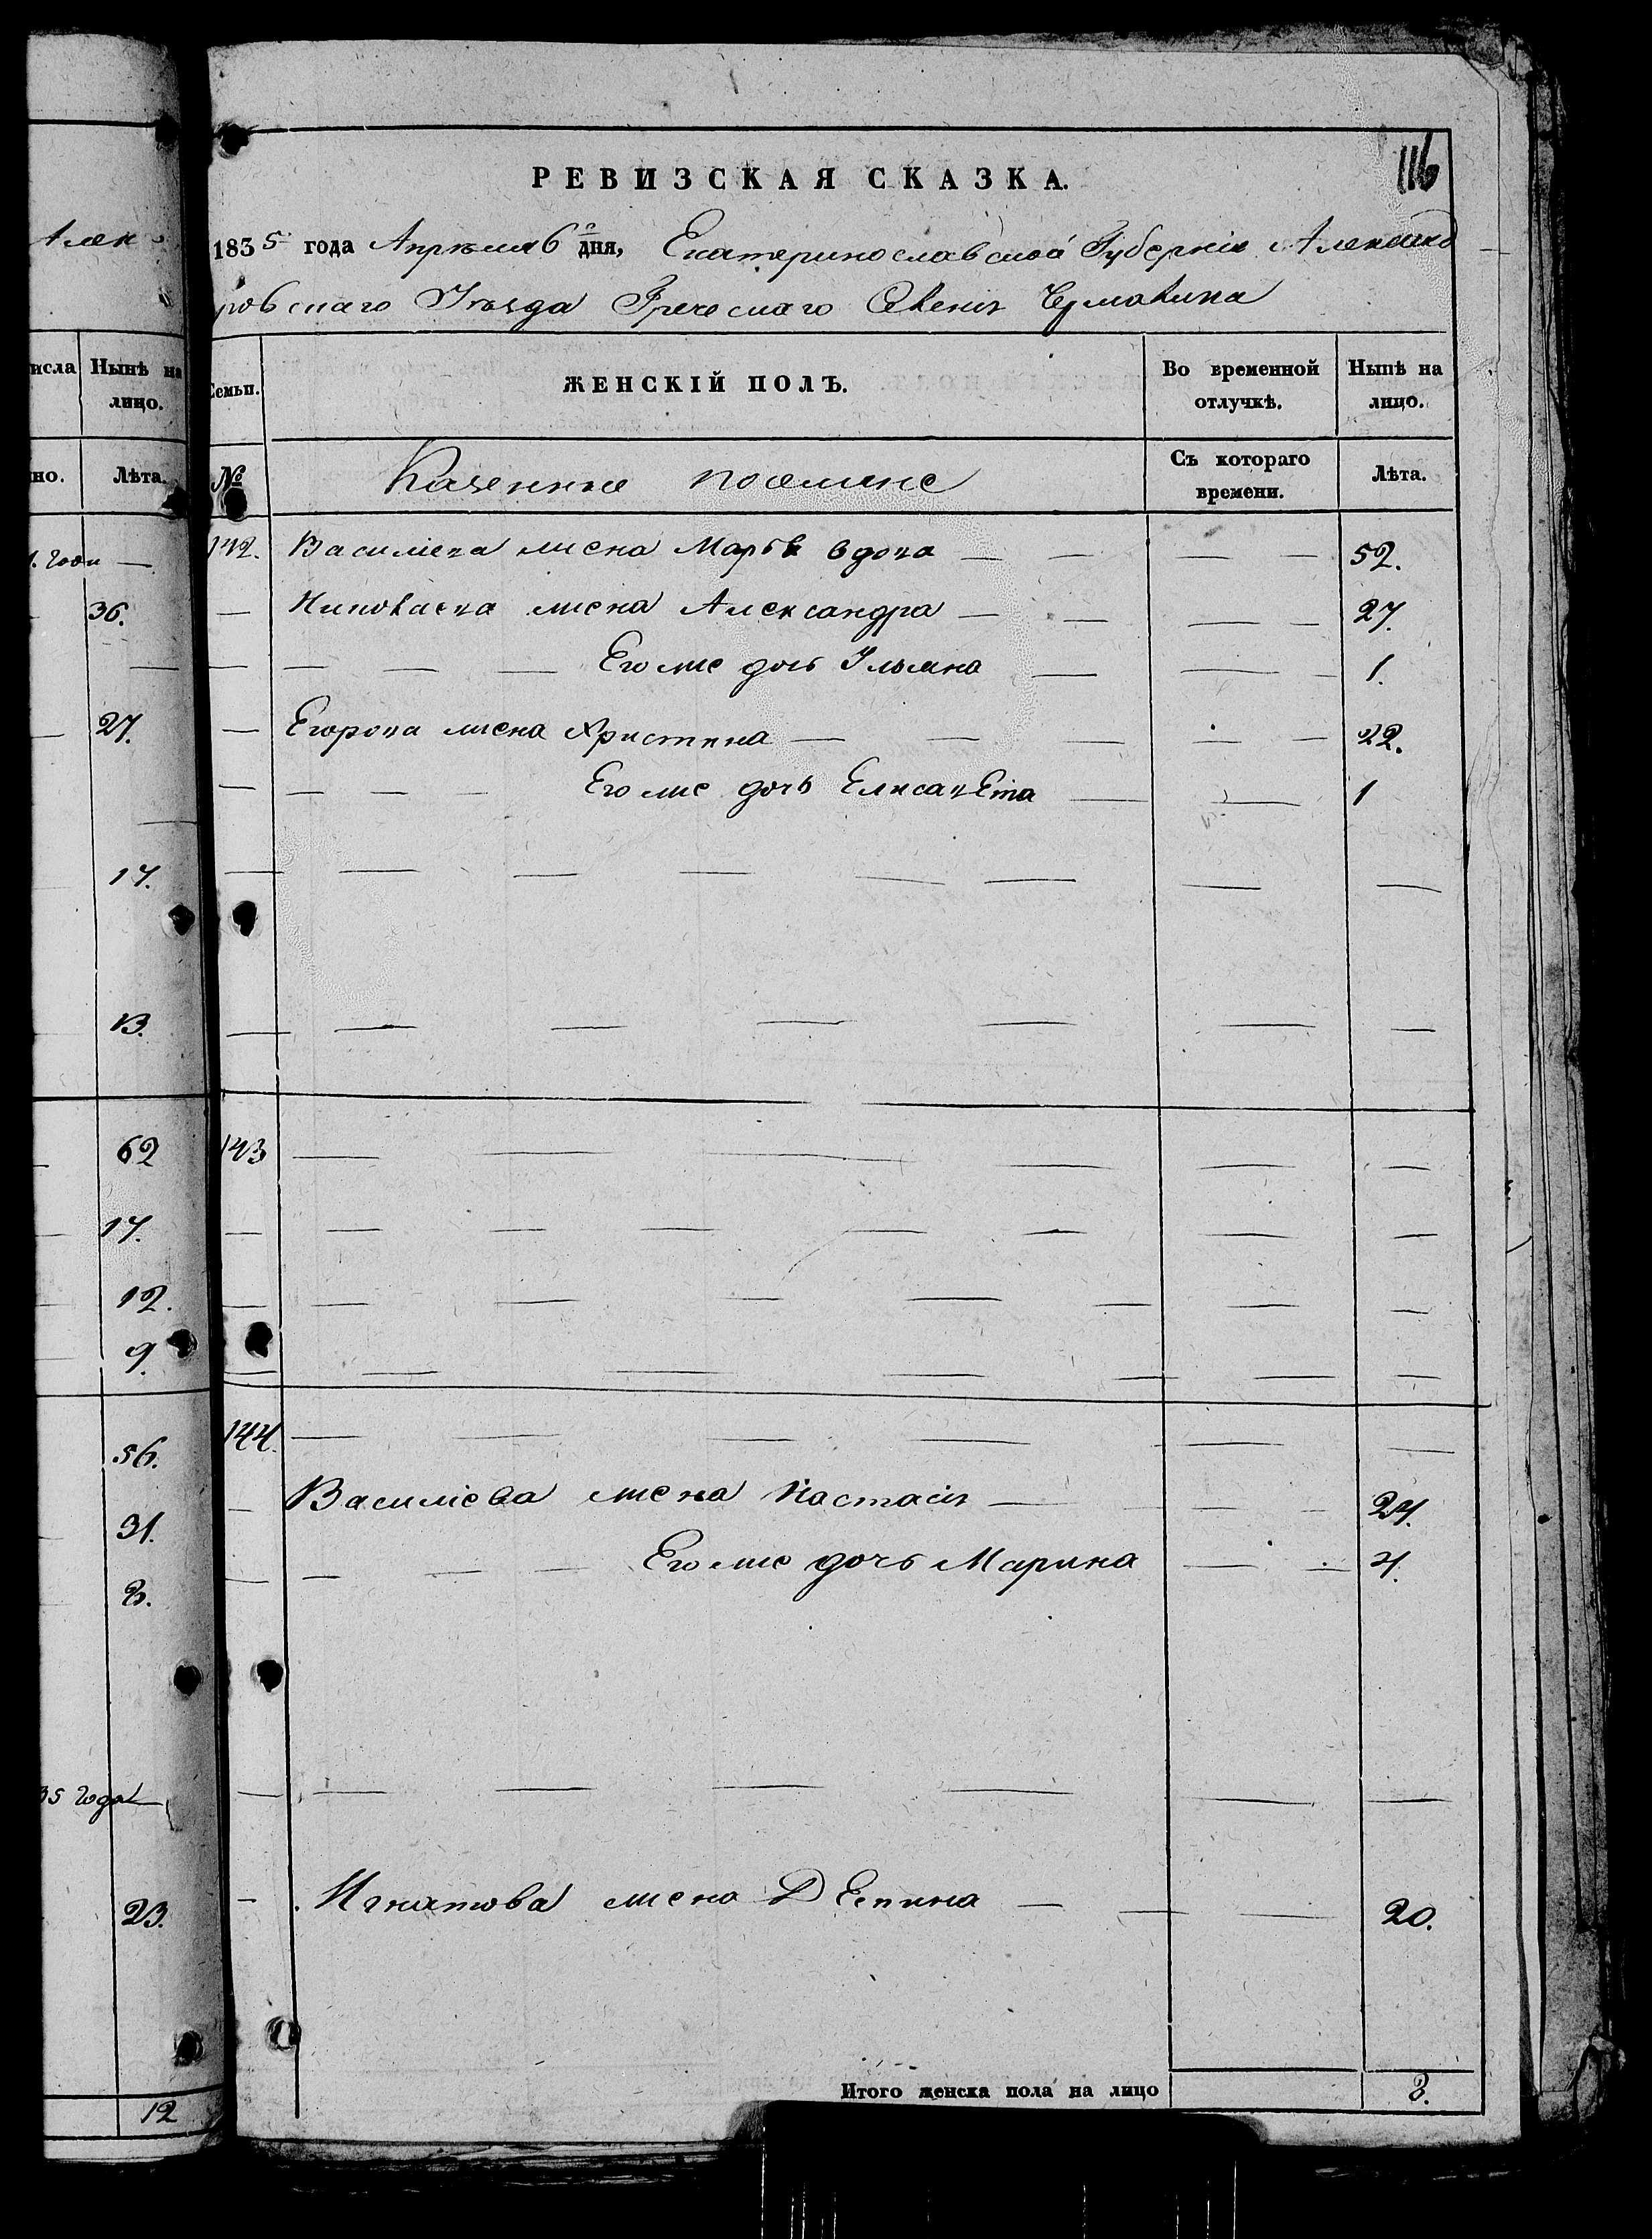 116
РЕВИЗСКАЯ СКАЗКА.
1835 года Апрѣля 6 дня, Екатеринославской Губерніи Александ
ровскаго Уѣзда Греческаго Селенія Чермалика
Алек
исла Нынѣ на лицо.
но. Лѣта.
Семьи. ЖЕНСКІЙ ПОЛЪ. Во временной отлучкѣ. Нынѣ на лицо.
№ Казенные поселяне Съ котораго времени. Лѣта.
142. Василіева жена Марья вдова — — — — 52.
36. — Николаева жена Александра — — — — 27.
— — — — Его же дочь Ульяна — — — 1.
27. — Егорова жена Христина — — — — — 22.
— — — — Его же дочь Елисавета — — 1
17. — — — — — — — —
13. — — — — — — —
62 143 — — — — — —
17. — — — — — — — —
12. — — — — — — — —
9. — — — — — — — —
56. 144. — — — — — —
31. — Василіева жена Настасія — — — — 24.
3. — — — — Его же дочь Марина — — 4.
35 года — — — — — — —
23. — Игнатова жена — — — 20.
12
Итого женска пола на лицо 8.